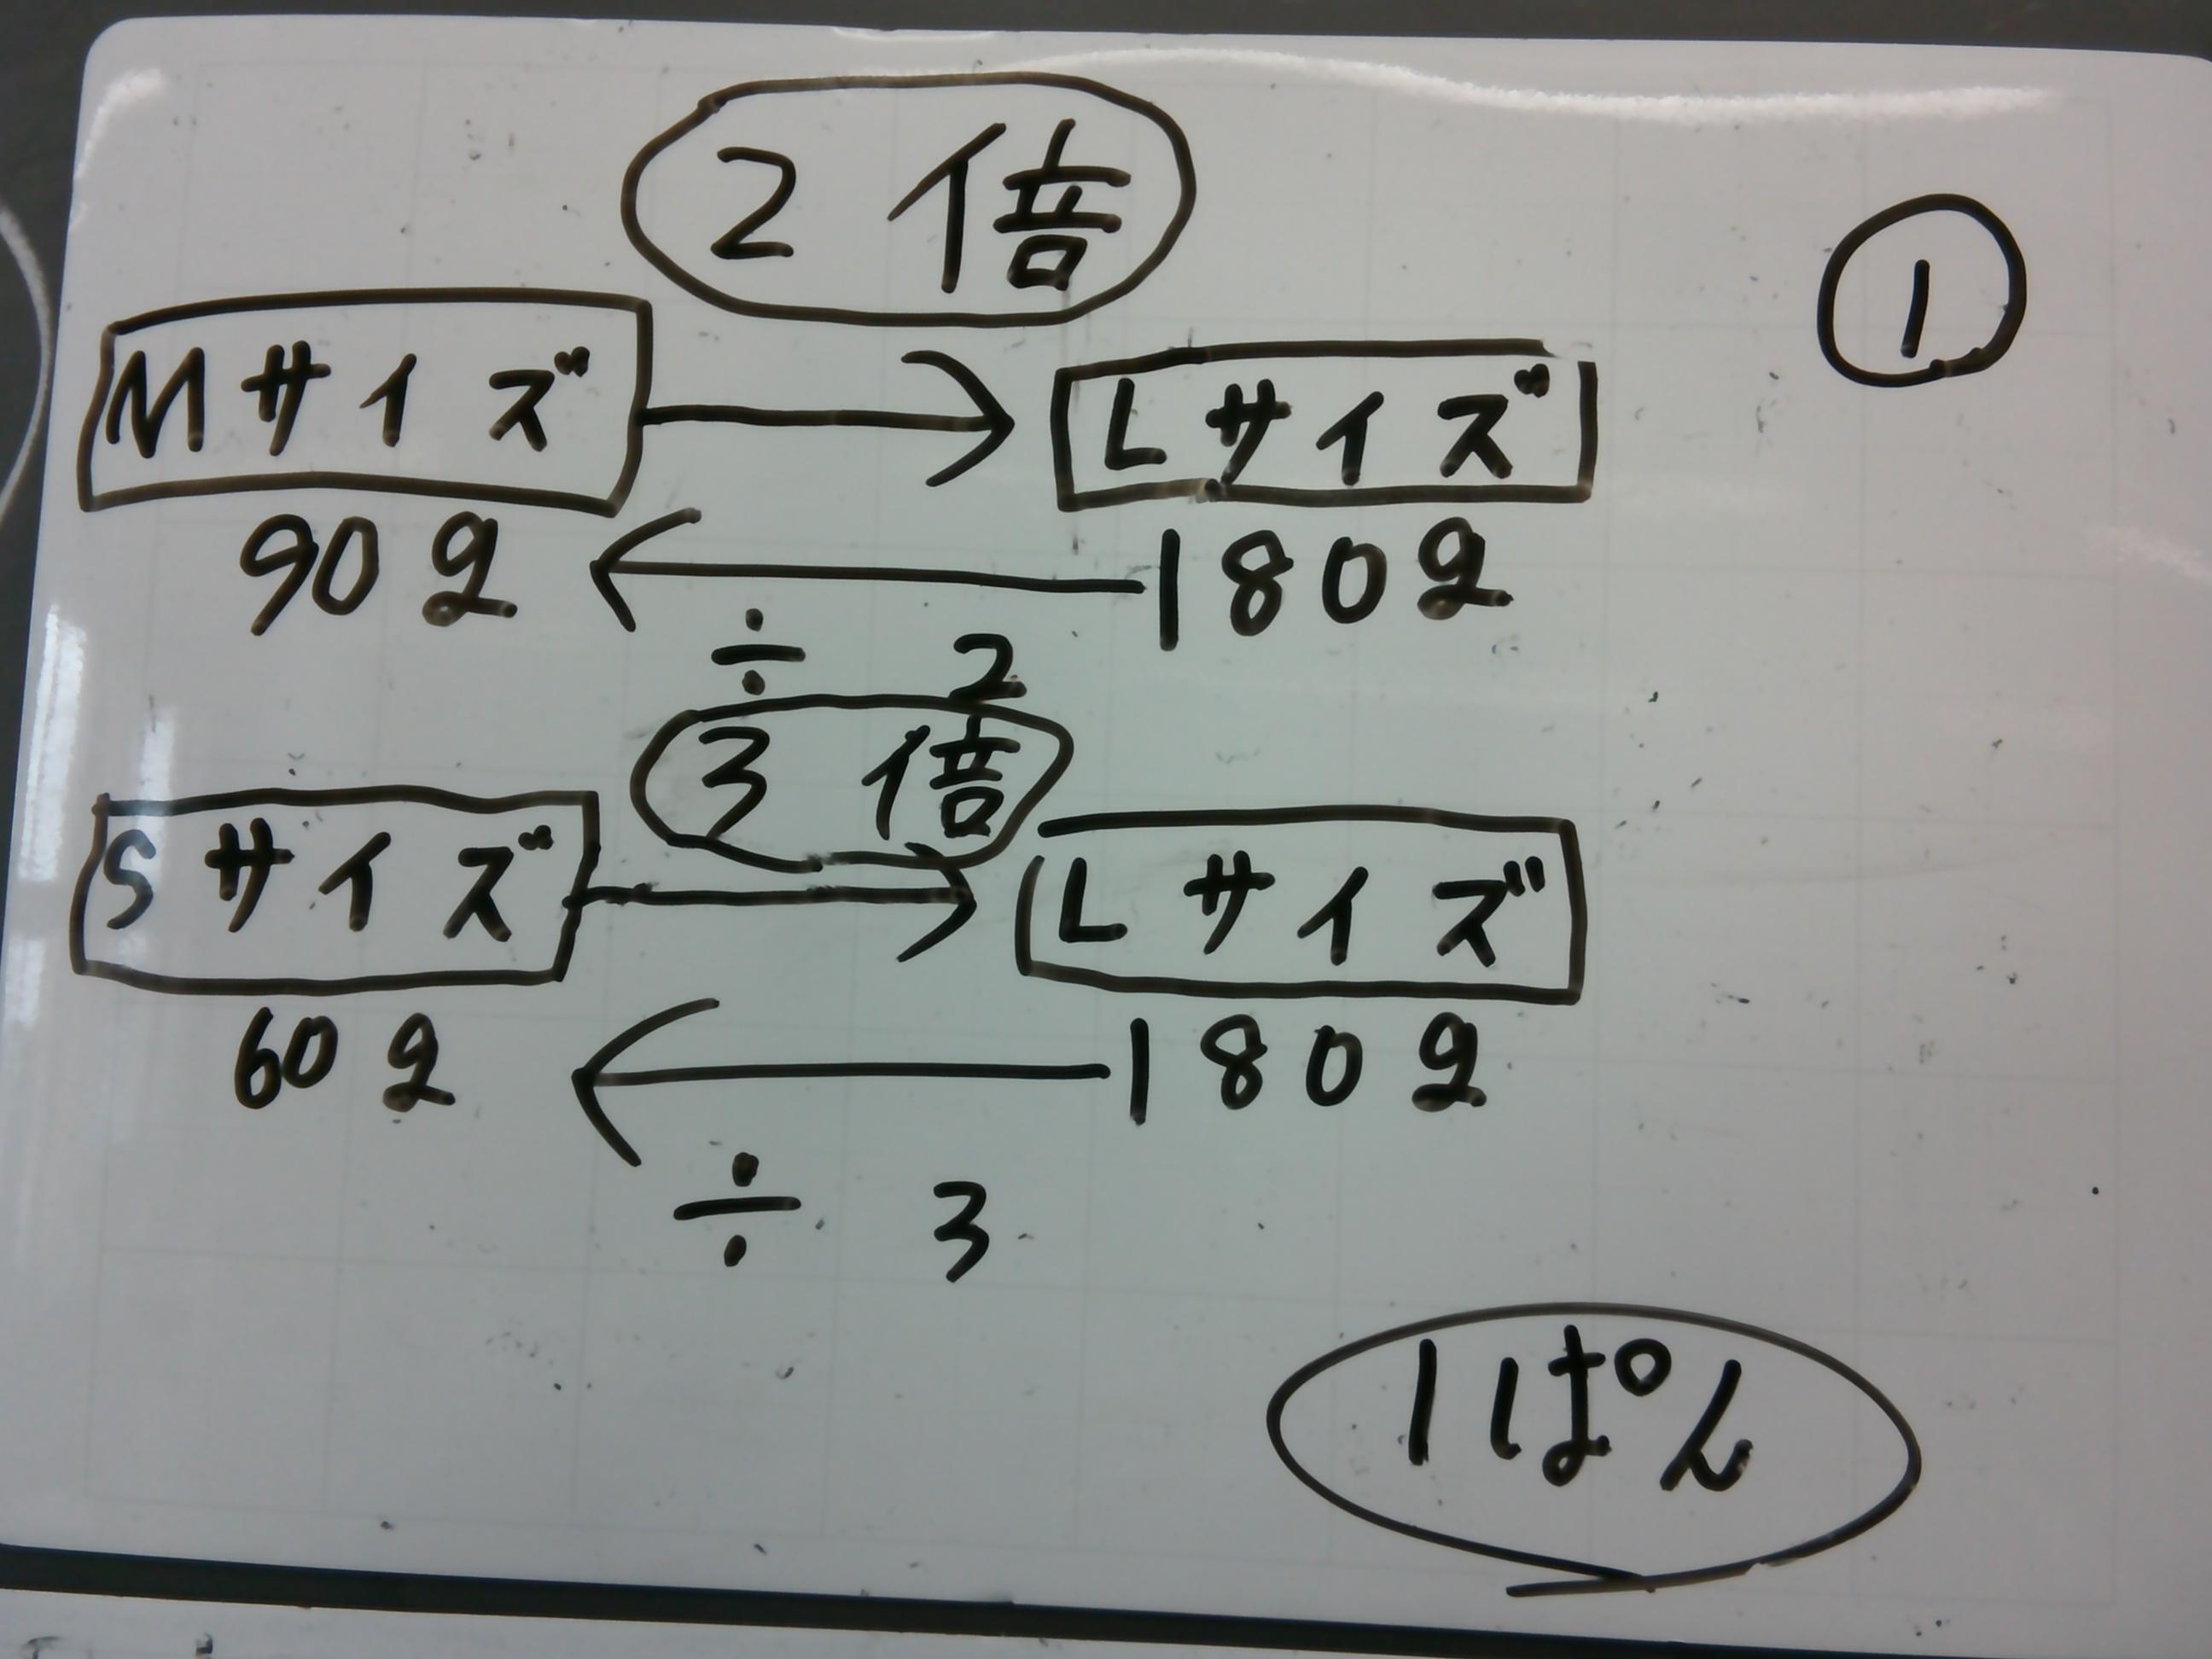 2倍
①
Mサイズ
Lサイズ
90g
180g
÷2
3倍
Sサイズ
Lサイズ
60g
180g
÷3
1ぱん